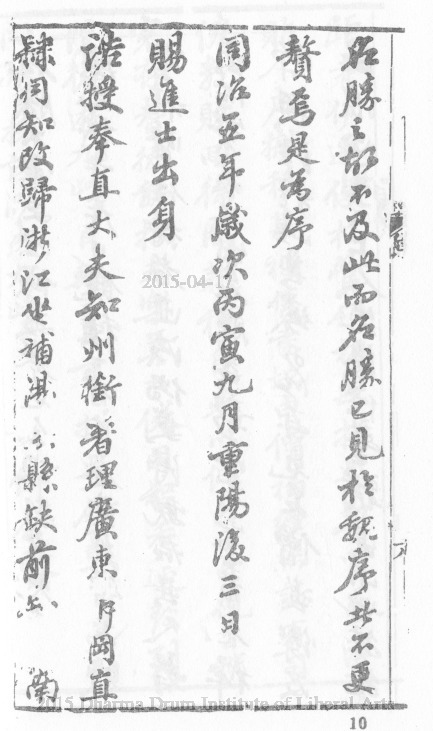 名勝之故不及此而名勝已見於魏序故不更
贅焉是爲序
同治五年歲次丙寅九月重陽後三日
賜進士出身
誥授奉直大夫知州銜署理廣東 岡直
隸同知改歸浙江 補 縣缺前 南
2015-04-17
2015 Dharma Drum Institute of Liberal Arts
10